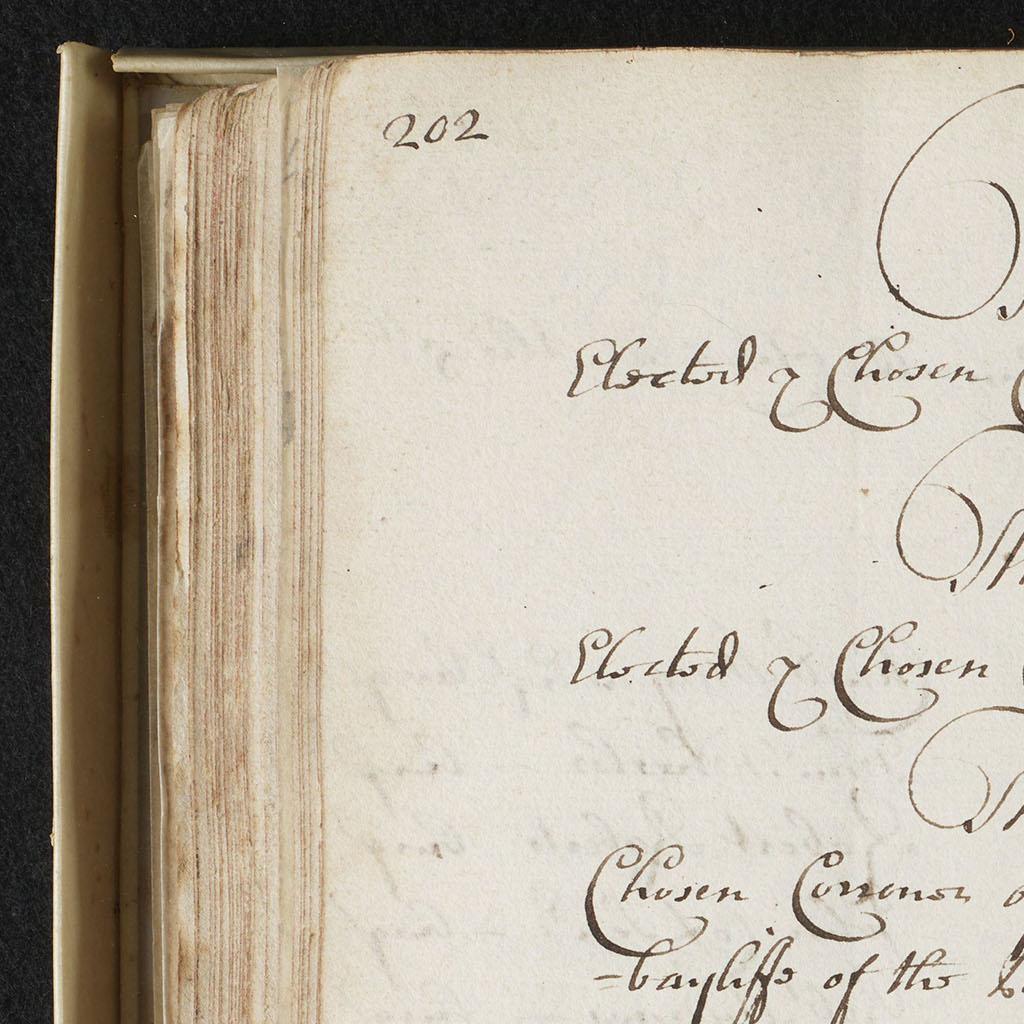 202
Elected & Chosen
Elected & Chosen
Chosen Corroner
=bayliffe of the